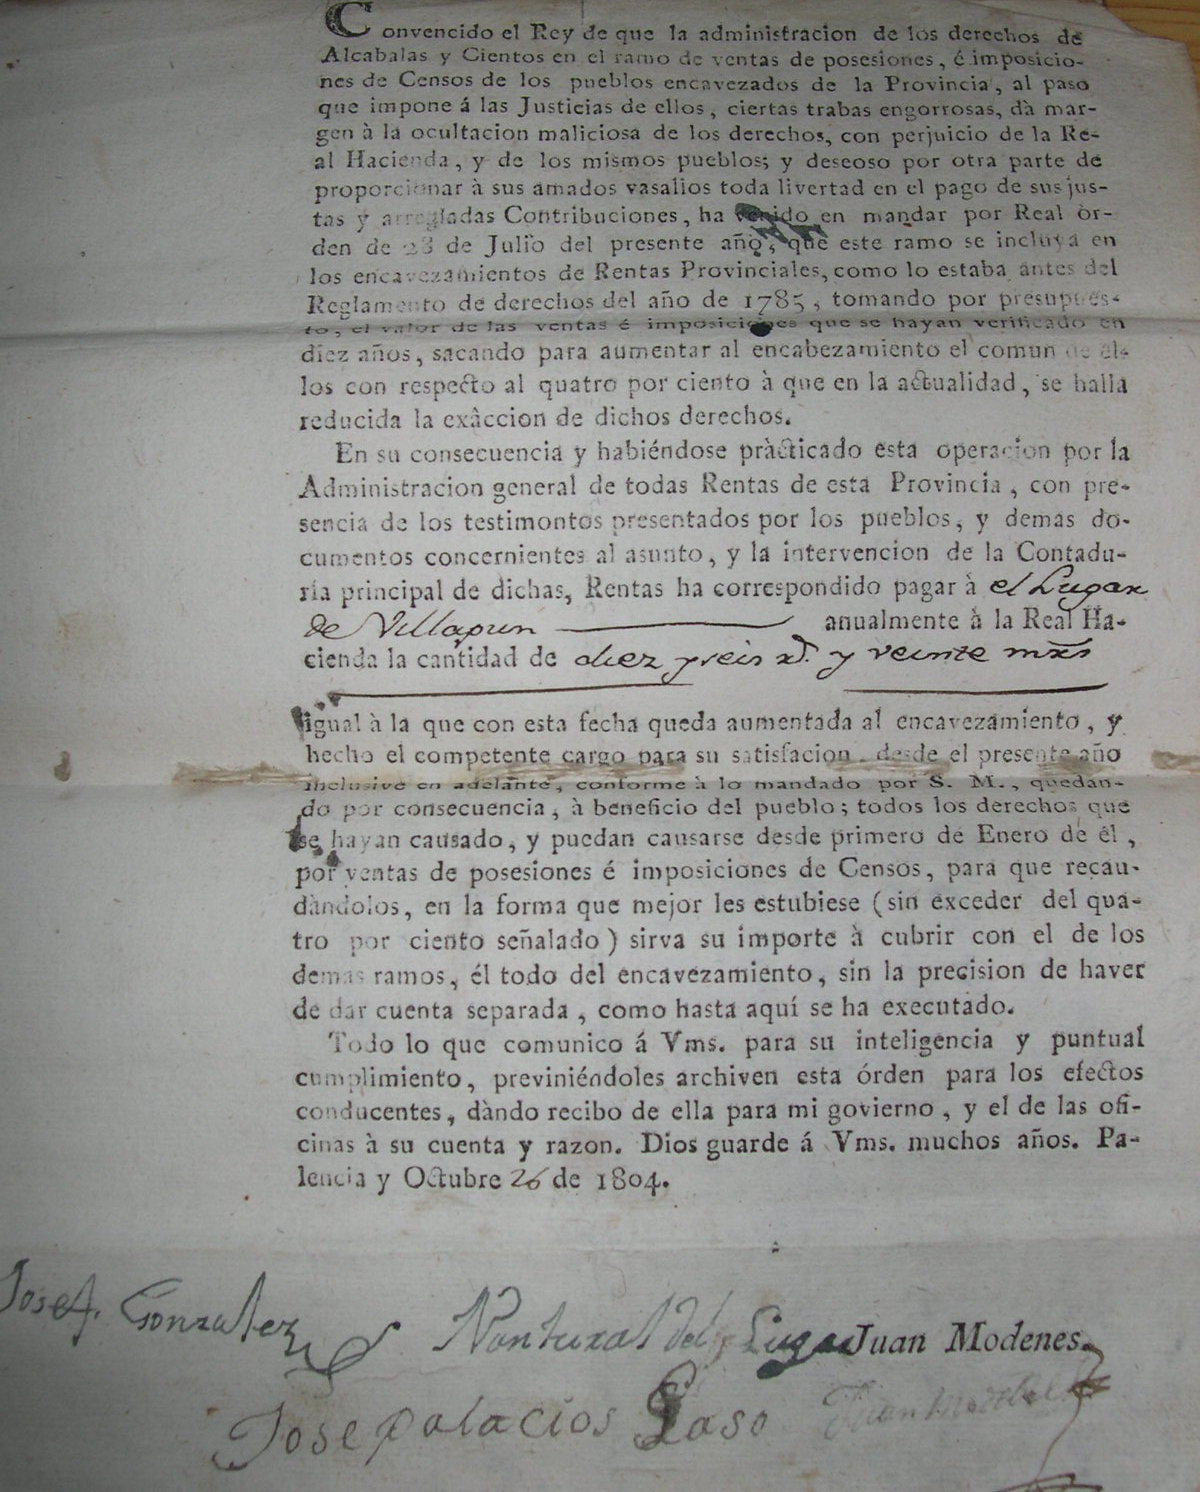 Convencido el Rey de que la administracion de los derechos de
Alcabalas y Cientos en el ramo de ventas de posesiones, é imposicio-
nes de Censos de los pueblos encavezados de la Provincia, al paso
que impone á las Justicias de ellos, ciertas trabas engorrosas, dà mar-
gen à la ocultacion maliciosa de los derechos, con perjuicio de la Re-
al Hacienda, y de los mismos pueblos; y deseoso por otra parte de
proporcionar à sus amados vasallos toda livertad en el pago de sus jus-
tas y arregladas Contribuciones, ha venido en mandar por Real òr-
den de 23 de Julio del presente año, que este ramo se incluya en
los encavezamientos de Rentas Provinciales, como lo estaba antes del
Reglamento de derechos del año de 1785, tomando por presupues-
to, el valor de las ventas é imposiciones que se hayan verificado en
diez años, sacando para aumentar al encabezamiento el comun de el-
los con respecto al quatro por ciento à que en la actualidad, se halla
reducida la exâccion de dichos derechos.
En su consecuencia y habiéndose pràcticado esta operacion por la
Administracion general de todas Rentas de esta Provincia, con pre-
sencia de los testimontos presentados por los pueblos, y demas do-
cumentos concernientes al asunto, y la intervencion de la Contadu-
ría principal de dichas, Rentas ha correspondido pagar à el Lugar
de Villapun anualmente à la Real Ha-
cienda la cantidad de diez y seis rs. y veinte mrs
igual à la que con esta fecha queda aumentada al encavezamiento, y
hecho el competente cargo para su satisfacion desde el presente año
inclusive en adelante, conforme à lo mandado por S. M., quedan-
do por consecuencia, à beneficio del pueblo; todos los derechos que
se hayan causado, y puedan causarse desde primero de Enero de él,
por ventas de posesiones é imposiciones de Censos, para que recau-
dàndolos, en la forma que mejor les estubiese (sin exceder del qua-
tro por ciento señalado) sirva su importe à cubrir con el de los
demas ramos, él todo del encavezamiento, sin la precision de haver
de dar cuenta separada, como hasta aquí se ha executado.
Todo lo que comunico á Vms. para su inteligencia y puntual
cumplimiento, previniéndoles archiven esta órden para los efectos
conducentes, dàndo recibo de ella para mi govierno, y el de las ofi-
cinas à su cuenta y razon. Dios guarde á Vms. muchos años. Pa-
lencia y Octubre 26 de 1804.
Josef Gonzalez Nantural del Lugar Juan Modenes.
Jose palacios Laso Juan